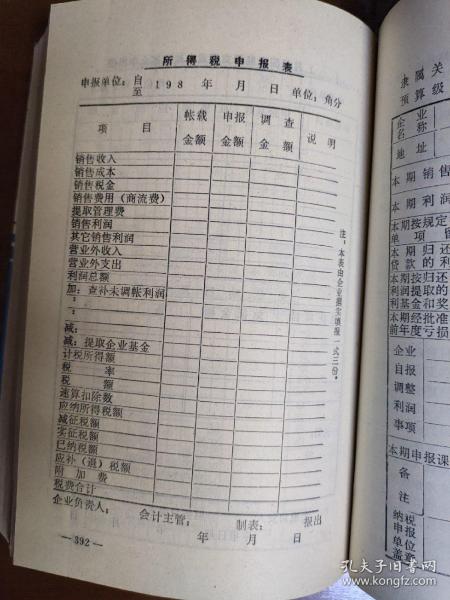 所得税申报表
申报单位：自至198 年 月 日 单位：角分
项 目 帐载金额 申报金额 调查金额 说明
销售收入
销售成本
销售税金
销售费用（商流费）
提取管理费
销售利润
其它销售利润
营业外收入
营业外支出
利润总额
加：查补未调帐利润
：
：
减：
减：提取企业基金
计税所得额
税 率
税 额
速算扣除数
应纳所得税额
减征税额
实征税额
已纳税额
应补（退）税额
附加费
税费合计
注：本表由企业据实填报一式三份。
企业负责人： 会计主管： 制表： 报出
年 月 日
— 392 —
隶属关
预算级
企业名称
地址
本期销售
本期利润
本期按规定
单项留
本期归还
贷款的利
本期按归还
利润提取的
利基金和奖
本期经批准
前年度亏损
企业
自报
调整
利润
事项
本期申报课
备
注
纳税
申报
单位
盖章
孔夫子旧书网
www.kongfz.com